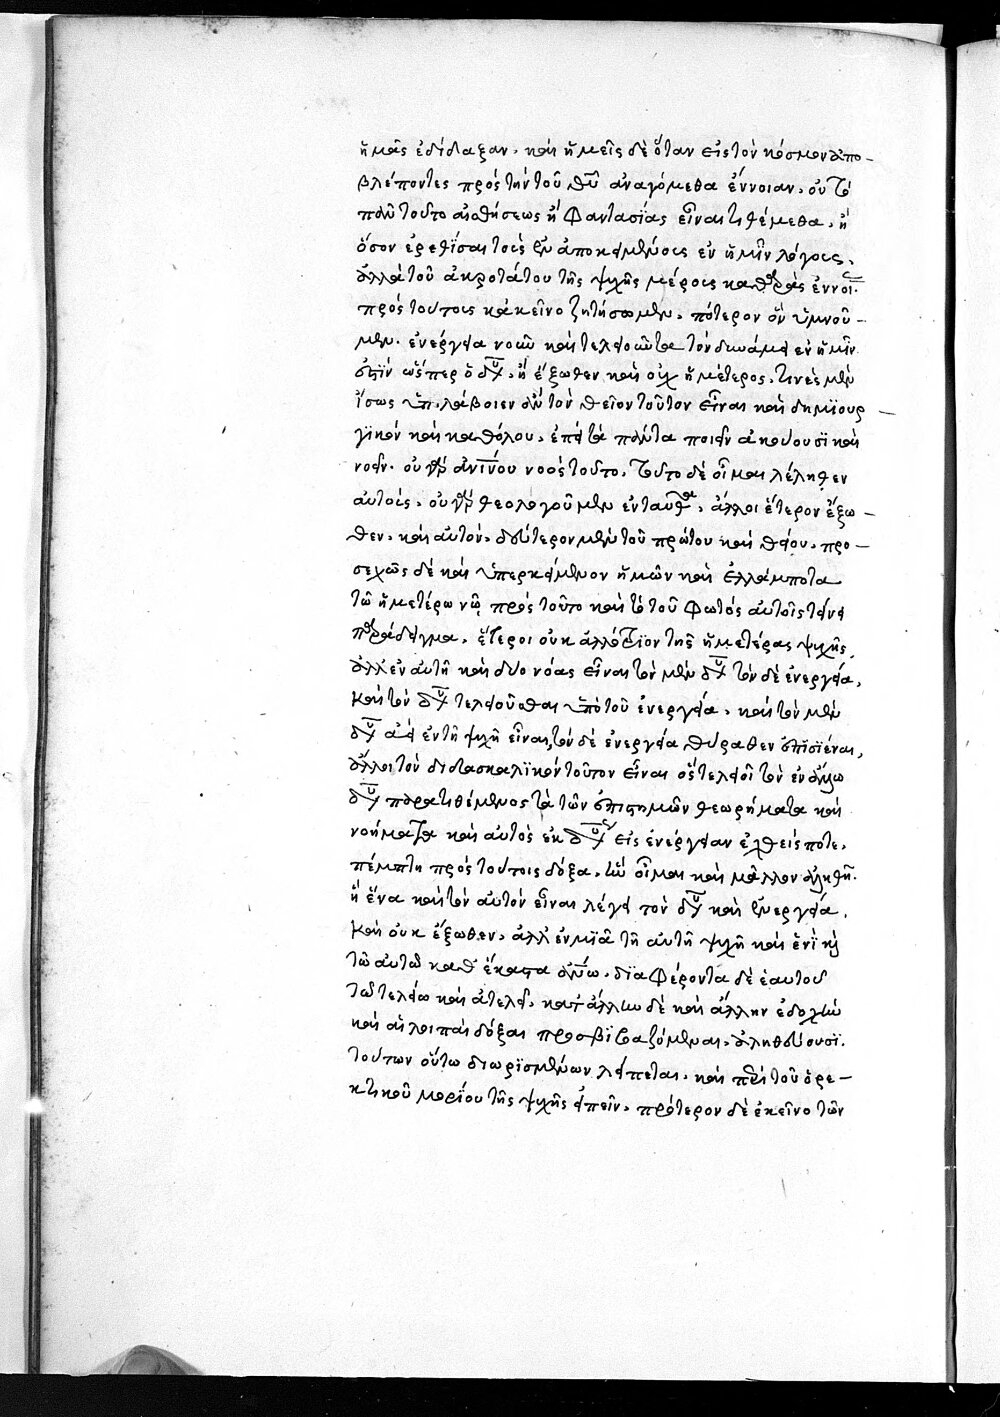 ἡμᾶς ἐδίδαξαν. καὶ ἡμεῖς δὲ ὅταν εἰς τὸν κόσμον ἀπο-
βλέποντες πρὸς τὴν τοῦ θυ ἀναγόμεθα ἔννοιαν. οὐ τὸ
πολὺ τοῦτο αἰσθήσεως ἢ φαντασίας εἶναι τιθέμεθα. ἢ
ὅσον ἐρεθίσαι τοῖς ἐναποκειμένοις ἐν ἡμῖν λόγοις.
ἀλλὰ τοῦ ἀκροτάτου τῆς ψυχῆς μέρους καθαρὰς ἐννοί.
πρὸς τούτοις κἀκεῖνο ζητήσωμεν. πότερον ὃν ὑμνοῦ-
μεν. ἐνεργεία νοῦν καὶ τελειοῦντα τὸν δυνάμει ἐν ἡμῖν
ἐστὶν ὥσπερ ὁ δυ. ἢ ἔξωθεν καὶ οὐχ ἡμέτερος. τινὲς μὲν
ἴσως ὑπολάβοιεν ἂν τὸν θεῖον τοῦτον εἶναι καὶ δημιουρ-
γικὸν καὶ καθόλου. ἐπεὶ τὰ πάντα ποιεῖν ἀκούουσι καὶ
νοεῖν. οὐ γὰρ ἀνίνου νοὸς τοῦτο. τοῦτο δὲ οἶμαι λέληθεν
αὐτοὺς. οὐ γὰρ θεολογοῦμεν ἐνταῦθα. ἄλλοι ἕτερον ἔξω-
θεν. καὶ αὐτὸν. δεύτερον μὲν τοῦ πρώτου καὶ θείου. προ-
σεχῶς δὲ καὶ ὑπερκείμενον ἡμῶν καὶ ἐλλάμποντα
τῶ ἡμετέρω νῶ. πρὸς τοῦτο καὶ τὸ τοῦ φωτὸς αὐτοῖς τείνει
παράδειγμα. ἕτεροι οὐκ ἀλλότριον τῆς ἡμετέρας ψυχῆς.
ἀλλ' ἐν αὐτῆ καὶ δύο νόας εἶναι τὸν μὲν δυ τὸν δὲ ἐνεργεία.
καὶ τὸν δυ τελειοῦσθαι ὑπὸ τοῦ ἐνεργεία. καὶ τὸν μὲν
δυ ἀεὶ ἐν τῆ ψυχῆ εἶναι, τὸν δὲ ἐνεργεία θύραθεν ἐπεισϊέναι,
ἄλλοι τὸν διδασκαλικὸν τοῦτον εἶναι ὃς τελειοῖ τὸν ἐν ἄλλω
δυ παρατιθέμενος τὰ τῶν ἐπιστημῶν θεωρήματα καὶ
νοήματα καὶ αὐτὸς ἐκ δυ εἰς ἐνέργειαν ἐλθείς ποτε.
πέμπτη πρὸς τούτοις δόξα. ἣν οἶμαι καὶ μᾶλλον ἀληθῆ.
ἡ ἕνα καὶ τὸν αὐτὸν εἶναι λέγει τὸν δυ καὶ ἐνεργεία.
καὶ οὐκ ἔξωθεν. ἀλλ' ἐν μιᾶ τῆ αὐτῆ ψυχῆ καὶ ἑνὶ καὶ
τῶ αὐτῶ καθ' ἕκαστα ἀνω. διαφέροντα δὲ ἑαυτοῦ
τῶ τελείω καὶ ἀτελεῖ. κατ' ἄλλην δὲ καὶ ἄλλην ἐδοχὴν
καὶ αἱ λοιπαὶ δόξαι προσβϊβαζόμεναι. ἀληθεύουσϊ.
τούτων οὕτω διωρισμένων λείπεται. καὶ περὶ τοῦ ὀρε-
κτικοῦ μορίου τῆς ψυχῆς εἰπεῖν. πρότερον δὲ ἐκεῖνο τῶν